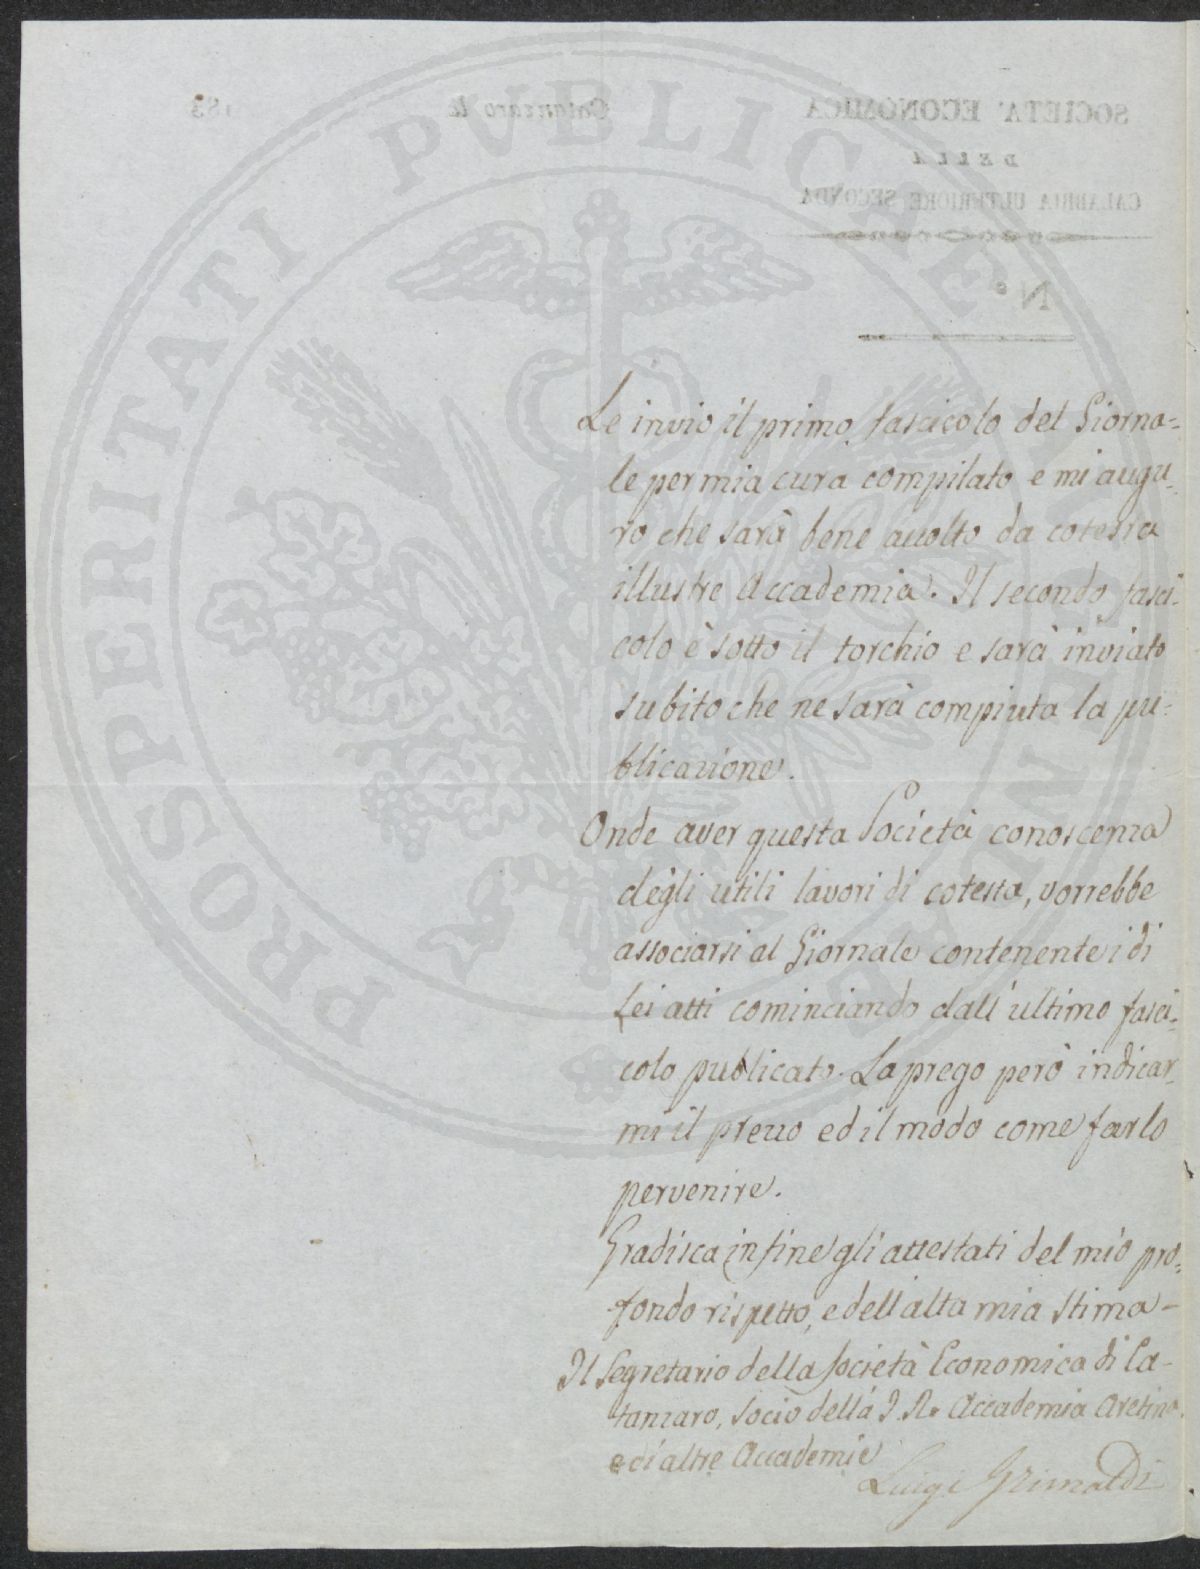 SOCIETA' ECONOMICA
DELLA
CALABRIA ULTERIORE SECONDA
Catanzaro li 183
N°
Le invio il primo fascicolo del Giorna=
le per mia cura compilato e mi augu=
ro che sarà bene accolto da cotesta
illustre Accademia. Il secondo fasci=
colo è sotto il torchio e sarà inviato
subito che ne sarà compiuta la pu=
blicazione.
Onde aver questa Società conoscenza
degli utili lavori di cotesta, vorrebbe
associarsi al Giornale contenente i di
Lei atti cominciando dall'ultimo fasci=
colo publicato. La prego però indicar=
mi il prezzo ed il modo come farlo
pervenire.
Gradisca in fine gli attestati del mio pro=
fondo rispetto, e dell'alta mia stima -
Il Segretario della Società Economica di Ca=
tanzaro, Socio della I. R. Accademia Aretina
e di altre Accademie
Luigi Grimaldi
PROSPERITATI PUBLICAE